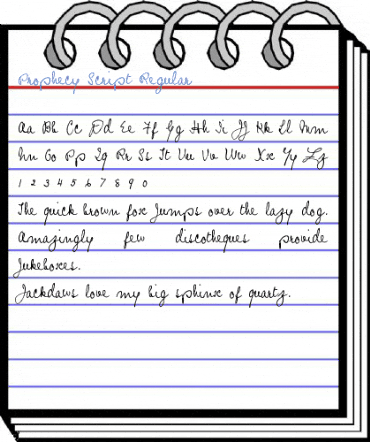 Prophecy Script Regular
Aa Bb Cc Dd Ee Ff Gg Hh Ii Jj Kk Ll Mm
Nn Oo Pp Qq Rr Ss Tt Uu Vv Ww Xx Yy Zz
1 2 3 4 5 6 7 8 9 0
The quick brown fox jumps over the lazy dog.
Amazingly few discotheques provide
jukeboxes.
Jackdaws love my big sphinx of quartz.